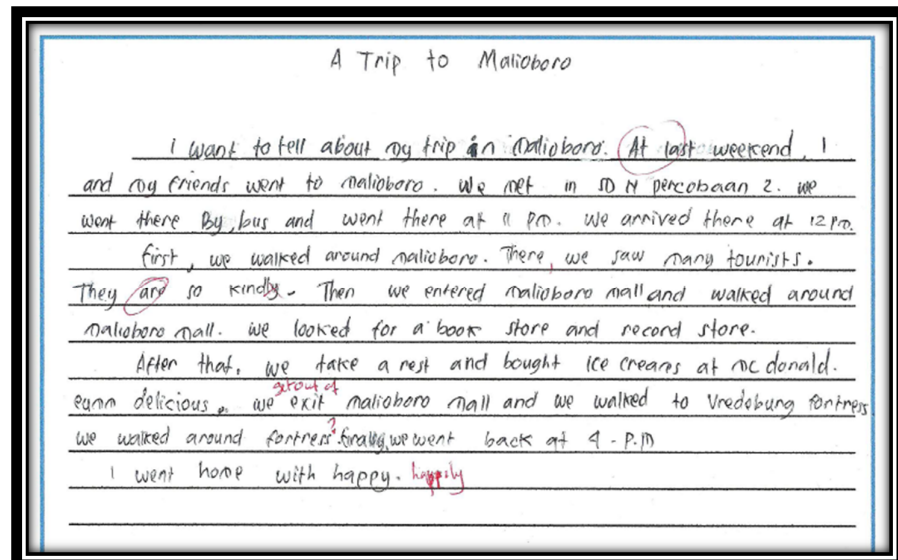 A Trip to Malioboro
i want to tell about my trip in malioboro. At last weekend, I
and my friends went to malioboro. we met in SD N percobaan 2. we
went there By bus and went there at 11 pm. we arrived there at 12 pm.
first, we walked around malioboro. There, we saw many tourists.
They are so kindly. Then we entered malioboro mall and walked around
malioboro mall. we looked for a book store and record store.
After that, we take a rest and bought ice creams at mc donald.
get out of
eumm delicious. we exit malioboro mall and we walked to Vredeburg fortress
we walked around fortress? finally, we went back at 4 - P.M
I went home with happy. happily